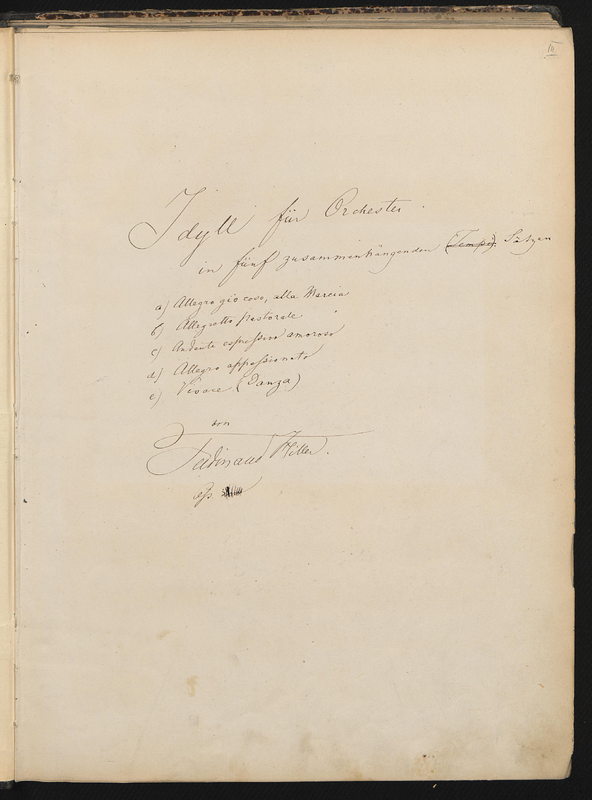 III.
Idyll für Orchester.
in fünf zusammenhängenden (Tempi) Sätzen
a) Allegro giocoso, alla Marcia
b) Allegretto pastorale
c) Andante espressivo amoroso
d) Allegro appassionato
e) Vivace (Danza)
von
Ferdinand Hiller.
op.